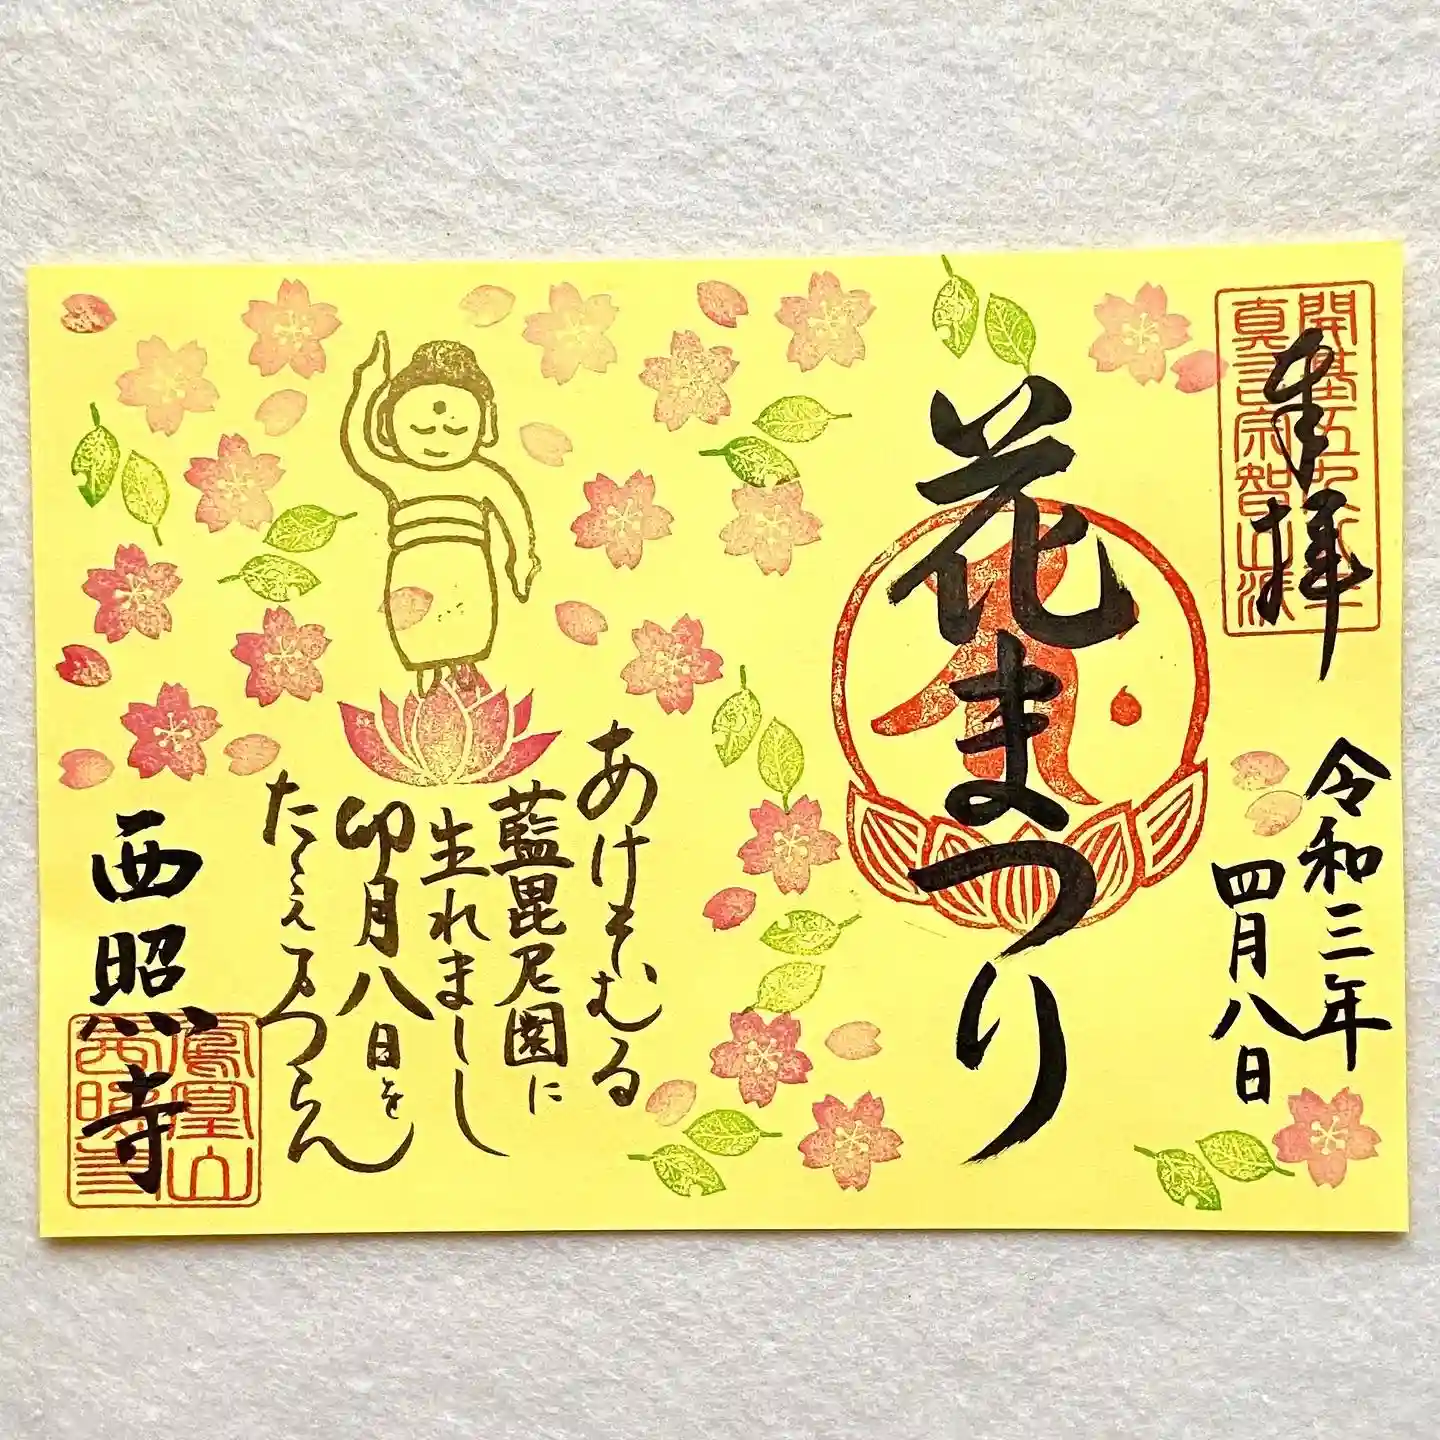 奉拝
令和三年
四月八日
花まつり
あけそむる
藍毘尼園に
生れましし
卯月八日を
たたえまつらん
西照寺
開基五
真言宗智山派
鳳凰山
西照寺